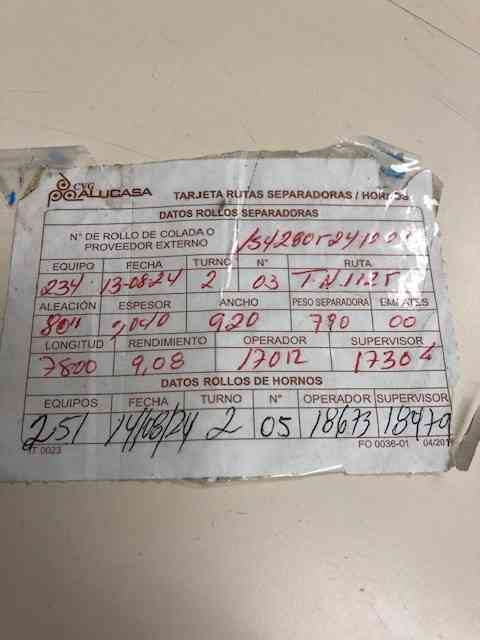 CVG
ALUCASA
TARJETA RUTAS SEPARADORAS / HORNOS
DATOS ROLLOS SEPARADORAS
N° DE ROLLO DE COLADA O
PROVEEDOR EXTERNO
EQUIPO FECHA TURNO N° RUTA
234 13-08-24 2 03
ALEACIÓN ESPESOR ANCHO PESO SEPARADORA EMPATES
8011 920 790 00
LONGITUD RENDIMIENTO OPERADOR SUPERVISOR
7800 9,08 17012 17304
DATOS ROLLOS DE HORNOS
EQUIPOS FECHA TURNO N° OPERADOR SUPERVISOR
251 14/08/24 2 05 18673 18479
IT 0023 FO 0036-01 04/201